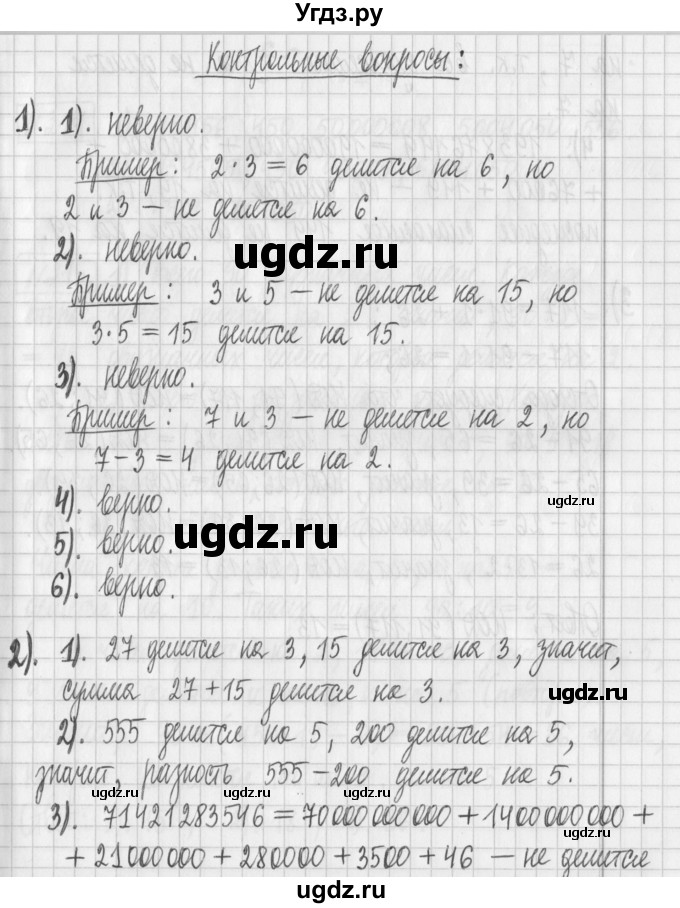 Угдз.ру
Контрольные вопросы:
1). 1). неверно.
Пример: 2·3=6 делится на 6, но
2 и 3 – не делится на 6.
2). неверно.
ugdz.ru
Пример: 3 и 5 – не делится на 15, но
3·5=15 делится на 15.
3). неверно.
Пример: 7 и 3 – не делится на 2, но
7-3=4 делится на 2.
4). верно.
ugdz.ru
5). верно.
ugdz.ru
6). верно.
2). 1). 27 делится на 3, 15 делится на 3, значит,
сумма 27+15 делится на 3.
ugdz.ru
2). 555 делится на 5, 200 делится на 5,
значит, разность 555-200 делится на 5.
ugdz.ru
3). 71421283546=70000000000+1400000000+
ugdz.ru
+21000000+280000+3500+46 – не делится
ugdz.ru